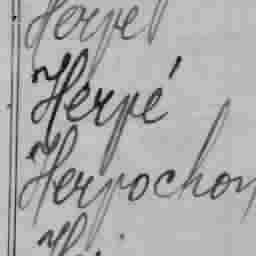 Herpel
Herpé
Herpochon